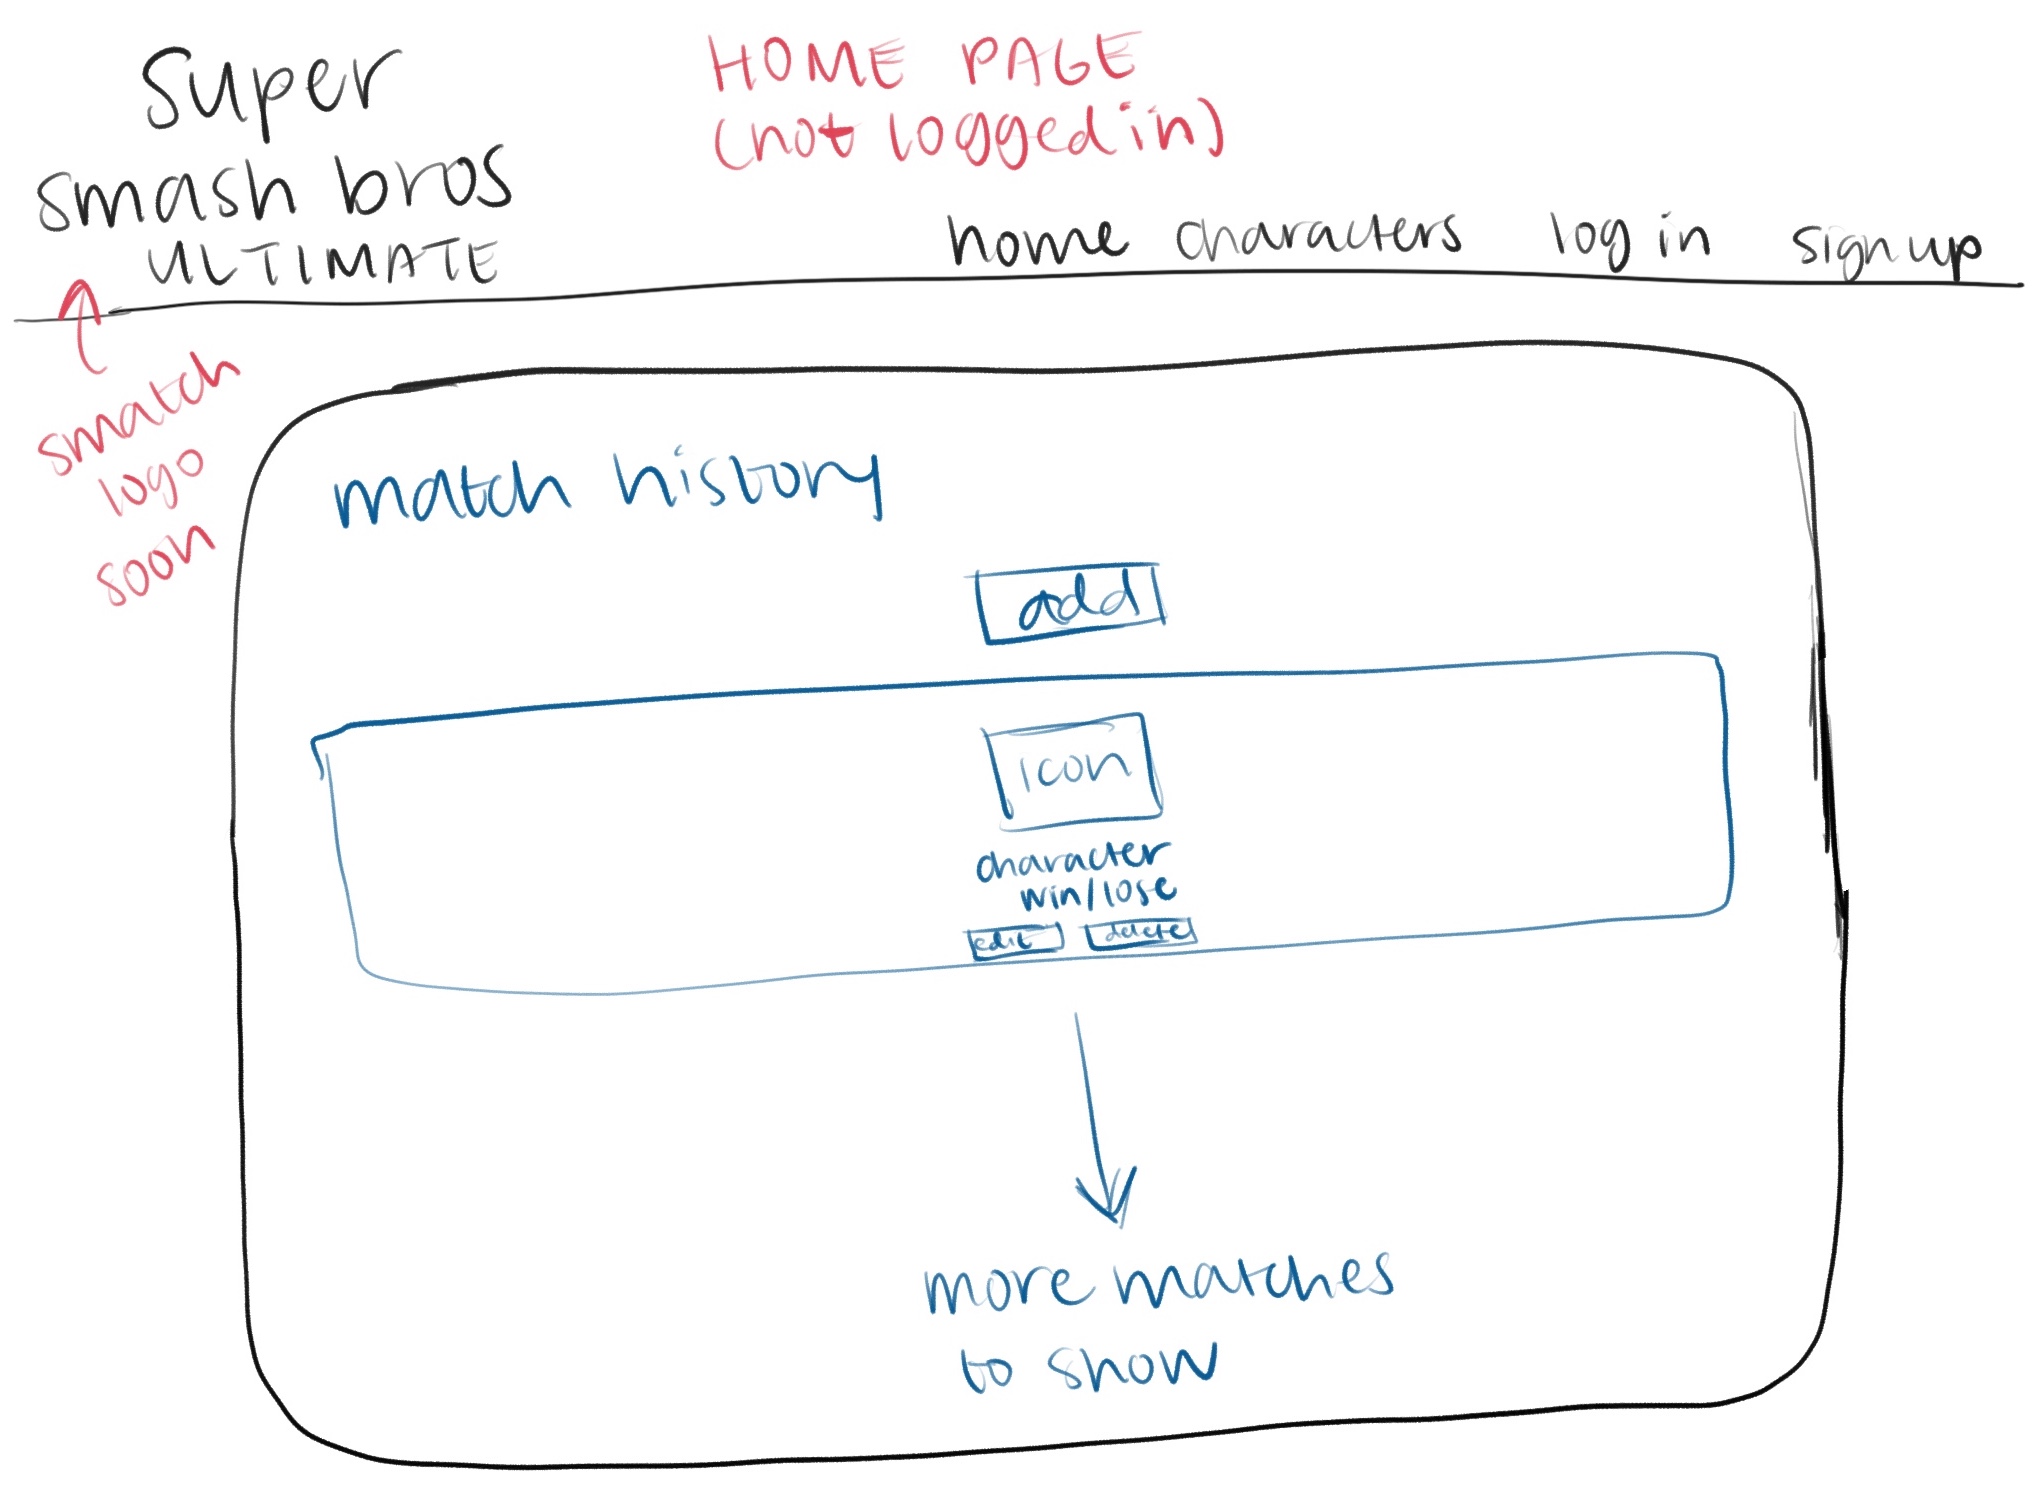 super
smash bros
ULTIMATE
HOME PAGE
(not logged in)
home characters log in sign up
smatch
logo
soon
match history
add
icon
character
win/lose
edit delete
more matches
to show